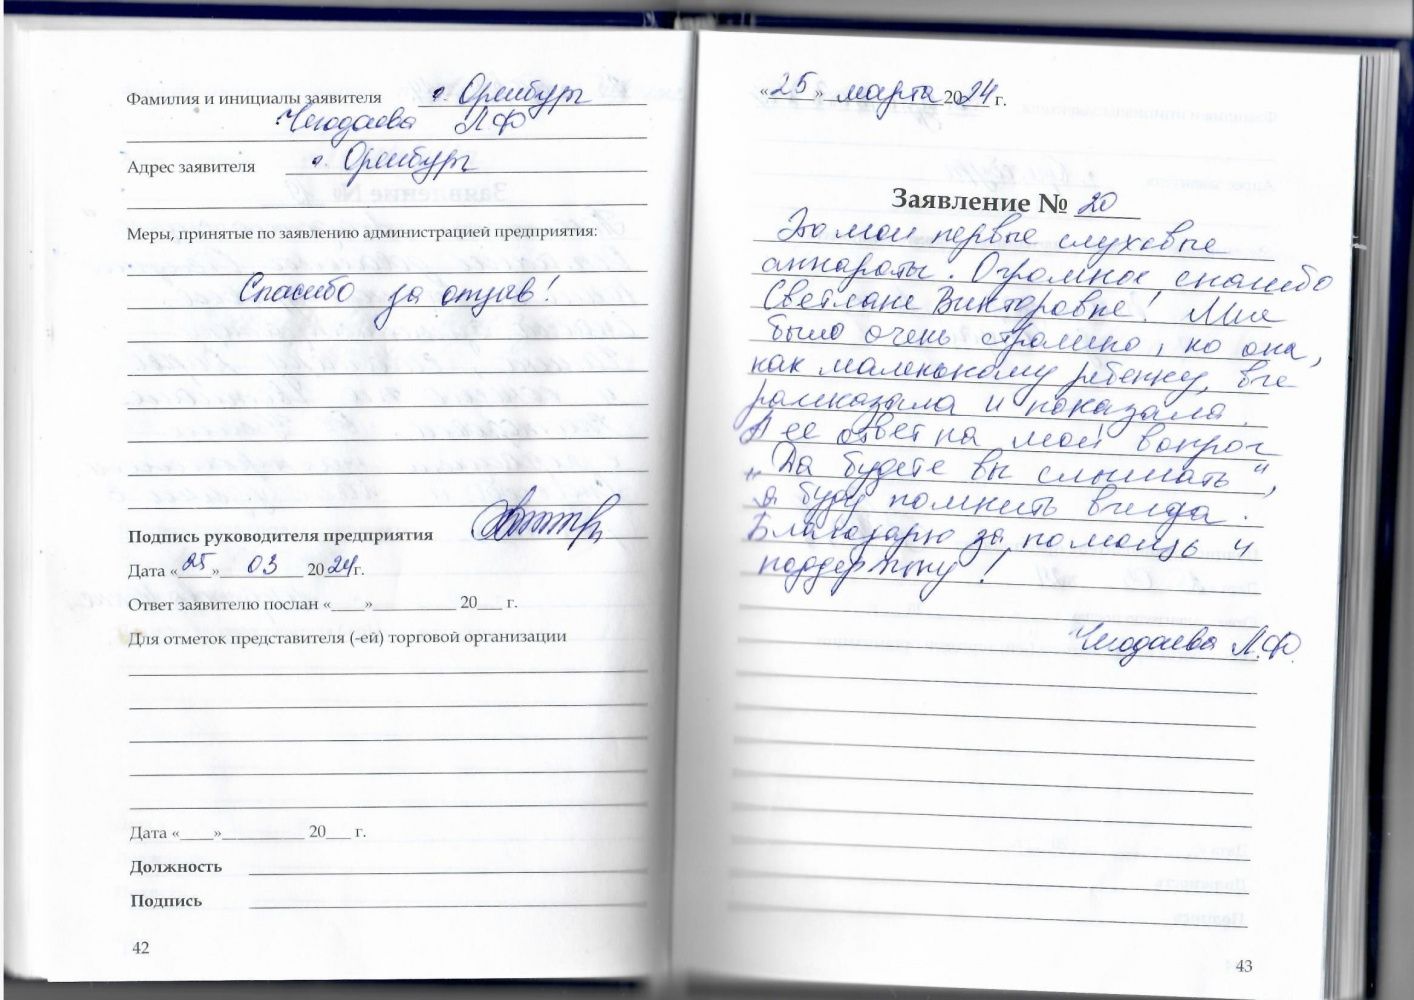 Фамилия и инициалы заявителя г. Оренбург
Чегодаева Л Ф
Адрес заявителя г. Оренбург
Меры, принятые по заявлению администрацией предприятия:
Спасибо за отзыв!
Подпись руководителя предприятия
Дата «25» 03 2024г.
Ответ заявителю послан «___»__________ 20___ г.
Для отметок представителя (-ей) торговой организации
Дата «____»__________ 20___ г.
Должность
Подпись
42
«25» марта 2024г.
Заявление № 20
Это мои первые слуховые
аппараты. Огромное спасибо
Светлане Викторовне! Мне
было очень страшно, но она,
как маленькому ребенку, все
рассказала и показала.
А ее ответ на мой вопрос
"Да будете вы слышать",
я буду помнить всегда.
Благодарю за помощь и
поддержку!
Чегодаева Л.Ф.
43